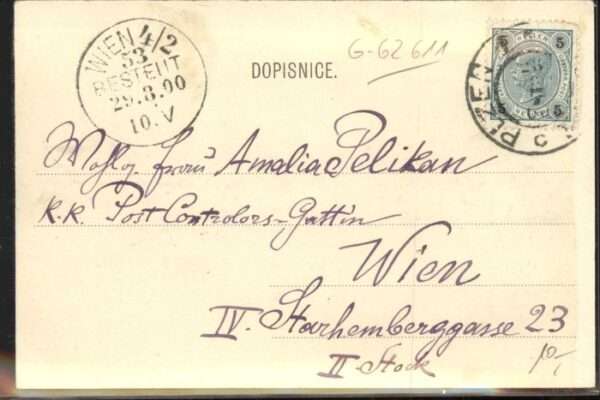 WIEN 4/2
53
BESTELLT
29.3.00
10.V
G-62611
DOPISNICE.
5 5
5 5
PLZEN
2
Wohlg. Frau Amalia Pelikan
K. K. Post Controlors-Gattin
Wien
IV. Starhemberggasse 23
II Stock
10,-